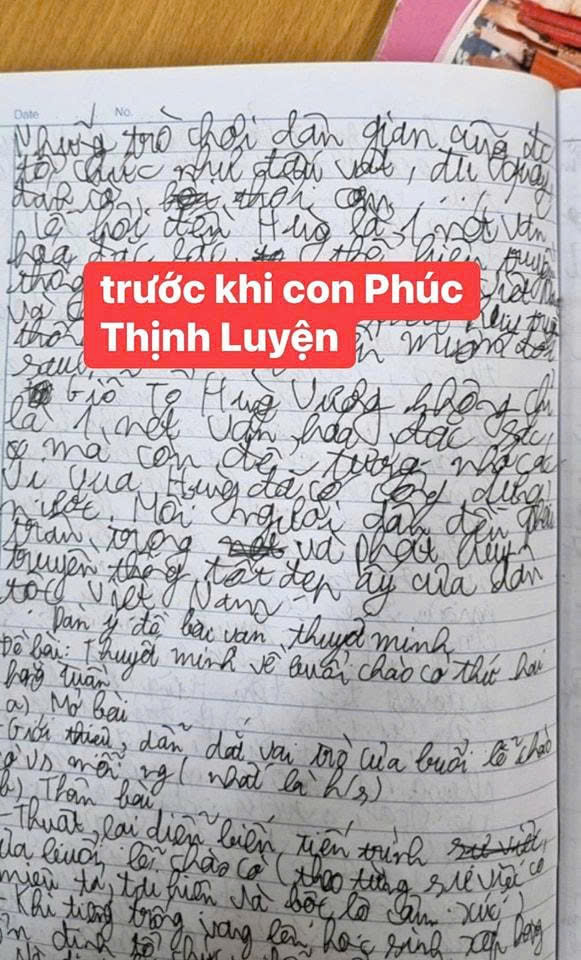 Date No.
Những trò chơi dân gian cũng đc
tổ chức như đấu vật, đu quay
thổi cơm ...
Lễ hội đền Hùng là 1 nét văn
hóa đặc sắc thể hiện truyền
trước khi con Phúc
Thịnh Luyện
thống
và
muôn đời
sau.
Giỗ Tổ Hùng Vương không chỉ
là 1 nét văn hóa đặc sắc
mà còn để tưởng nhớ các
vị vua Hùng đã có công dựng
nước. Mỗi người dân đều phải
trân trọng và phát huy
truyền thống tốt đẹp ấy của dân
tộc Việt Nam
Dàn ý đề bài văn thuyết minh
Đề bài: Thuyết minh về buổi chào cờ thứ hai
hàng tuần
a) Mở bài
- Giới thiệu, dẫn dắt vai trò của buổi lễ chào
cờ vs mỗi ng (nhất là h/s)
b) Thân bài
- Thuật lại diễn biến tiến trình sự việc
của buổi lễ chào cờ (theo từng sự việc có
miêu tả, biểu hiện và bộc lộ cảm xúc)
- Khi tiếng trống vang lên, học sinh xếp hàng
ổn định tổ chức